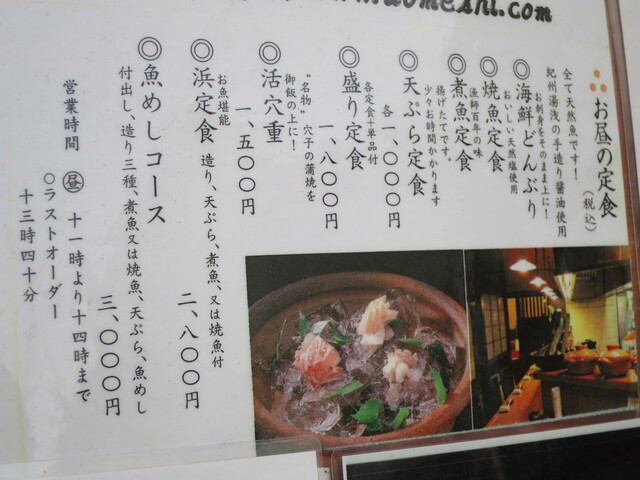 omeshi.com
お昼の定食(税込)
全て天然魚です!
紀州湯浅の手造り醤油使用
お刺身をそのまま上に!
◎海鮮どんぶり
おいしい天然塩使用
◎焼魚定食
漁師百年の味
◎煮魚定食
揚げたてです。
少々お時間かかります
◎天ぷら定食
各一、〇〇〇円
各定食+単品付
◎盛り定食
一、八〇〇円
"名物"穴子の蒲焼を
御飯の上に!
◎活穴重
一、五〇〇円
お魚堪能
◎浜定食 造り、天ぷら、煮魚、又は焼魚付
二、八〇〇円
◎魚めしコース
付出し、造り三種、煮魚又は焼魚、天ぷら、魚めし
三、〇〇〇円
営業時間 昼 十一時より十四時まで
○ラストオーダー
十三時四十分